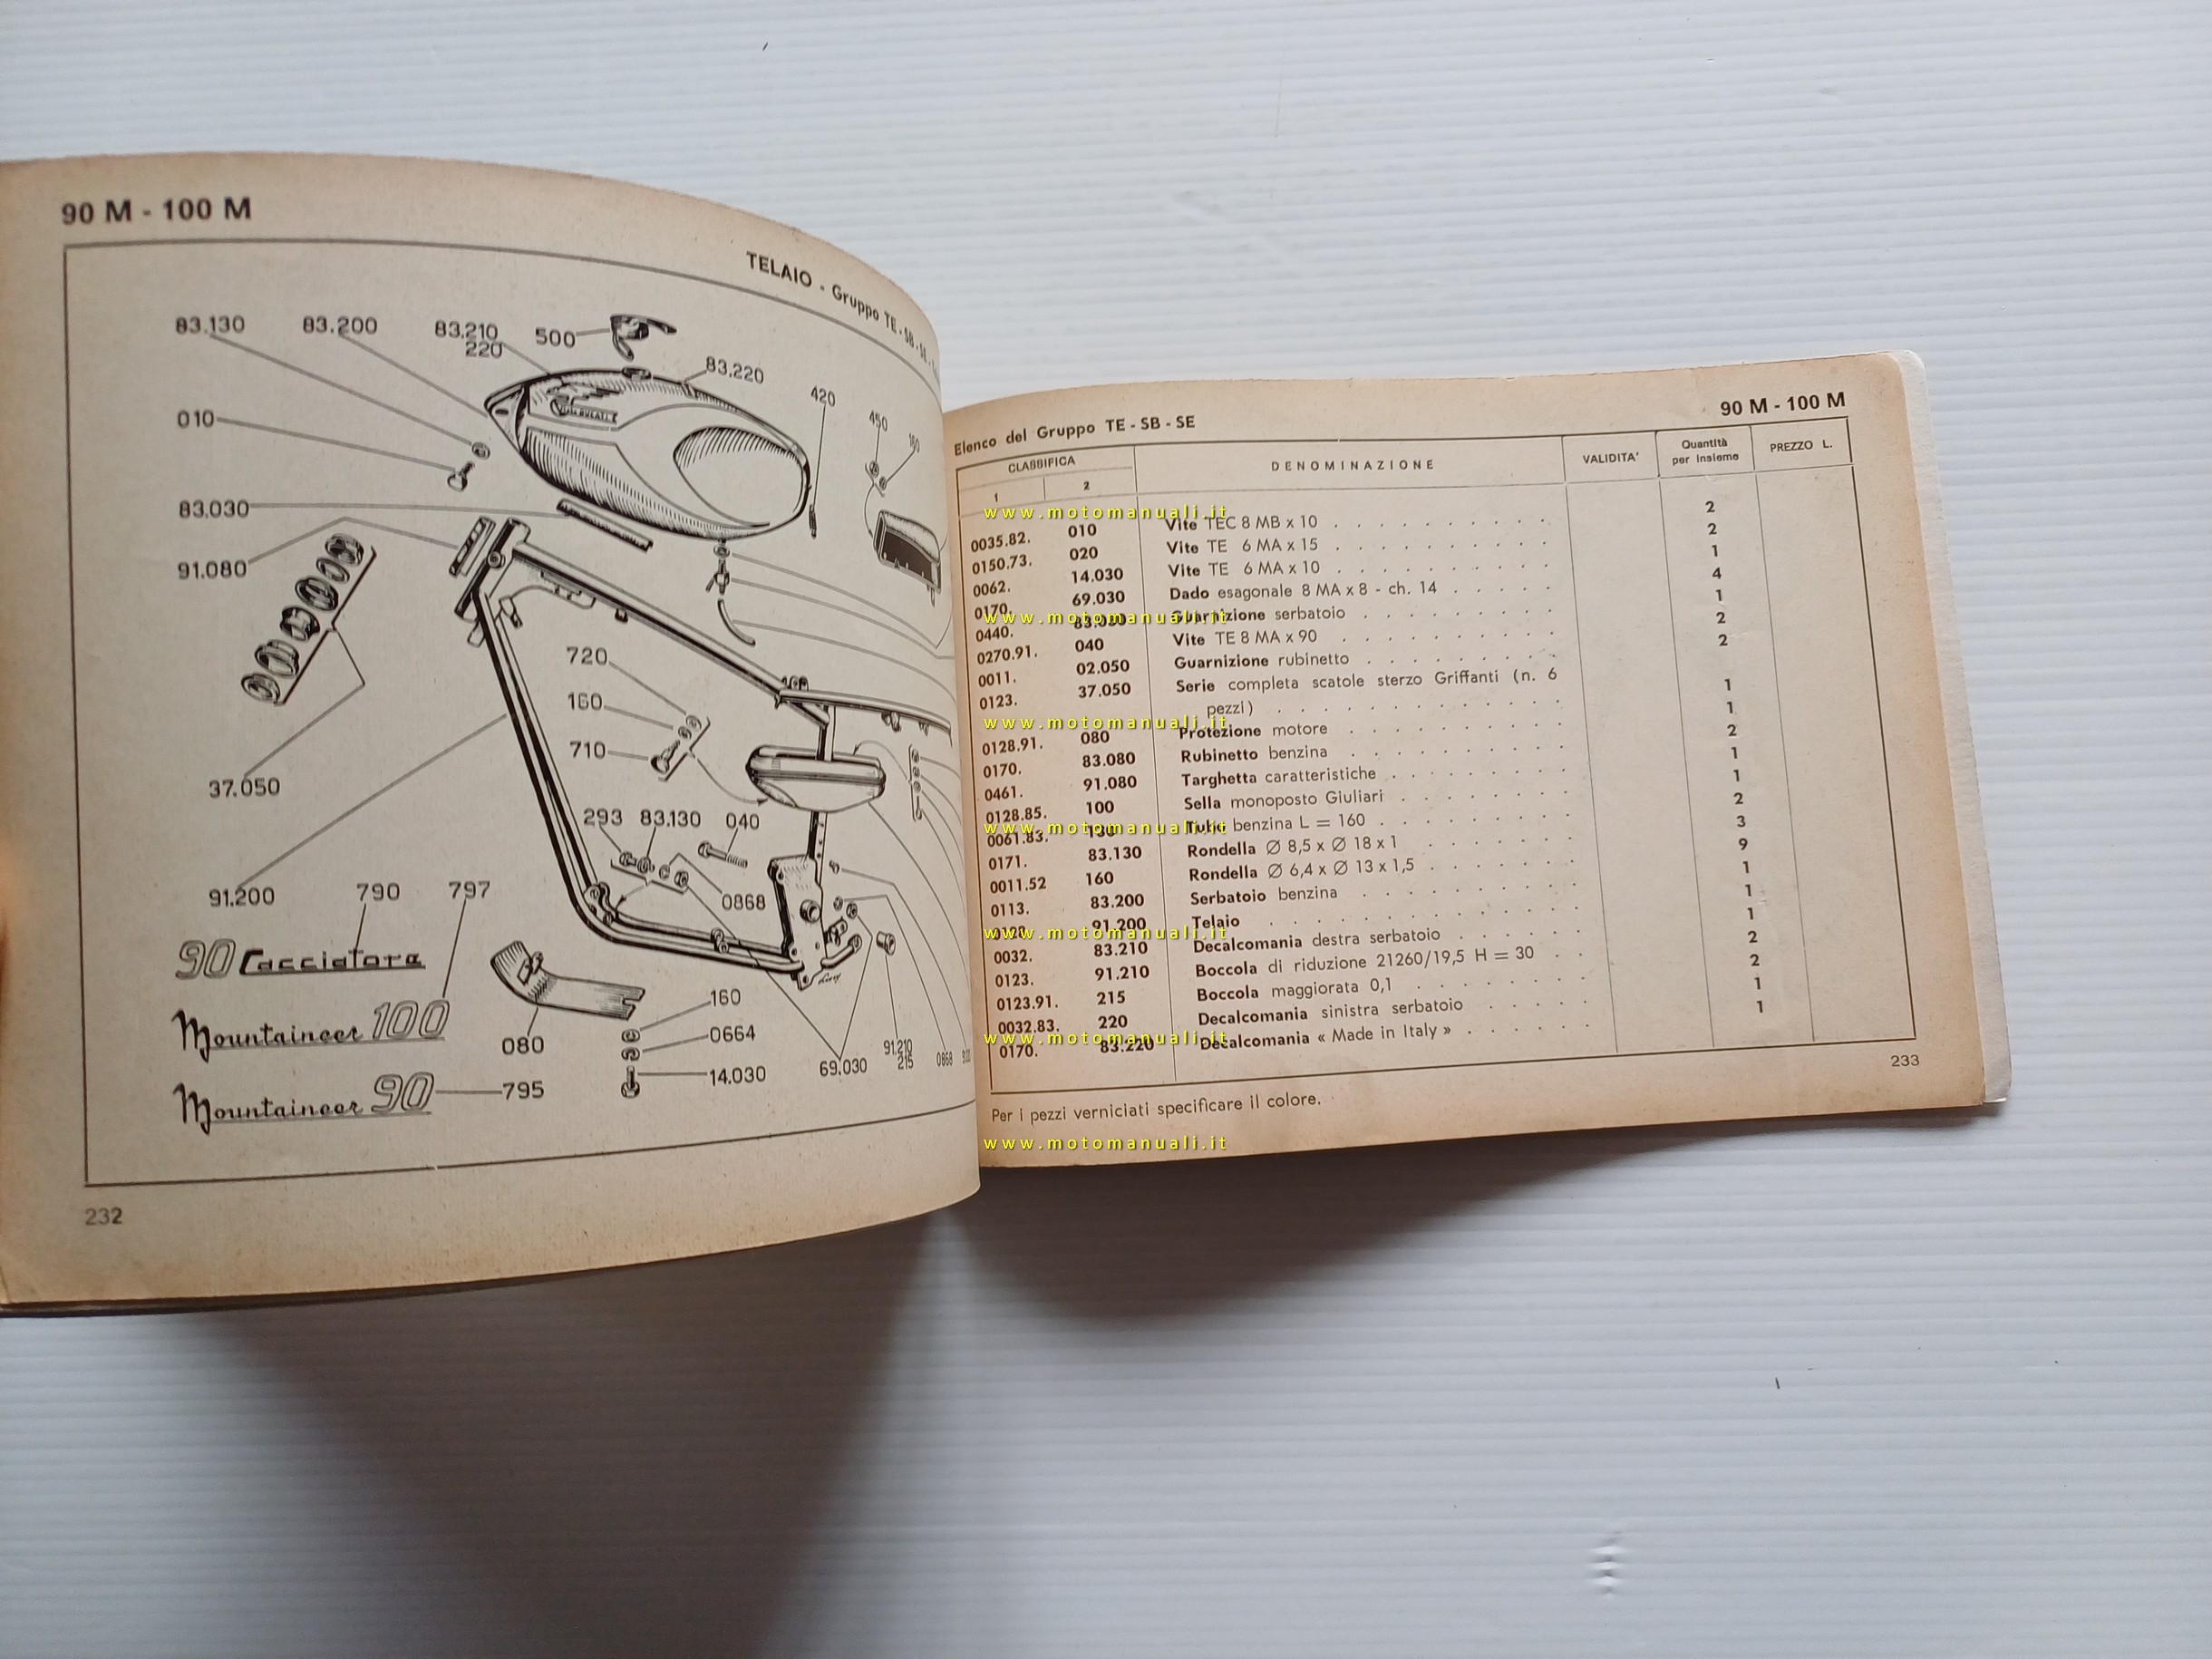 90 M - 100 M
TELAIO - Gruppo TE - SB - SE
83.130
83.200
83.210
220
500
83.220
420
450
160
010
83.030
91.080
720
160
710
37.050
293
83.130
040
91.200
790
797
0868
90 Cacciatore
Mountaineer 100
Mountaineer 90
795
080
160
0664
14.030
69.030
91.210
215
0868
232
Elenco del Gruppo TE - SB - SE
90 M - 100 M
CLASSIFICA
1
2
DENOMINAZIONE
VALIDITA'
Quantità
per insieme
PREZZO L.
0035.82. 010 Vite TEC 8 MB x 10 2
0150.73. 020 Vite TE 6 MA x 15 2
0062. 14.030 Vite TE 6 MA x 10 1
0170. 69.030 Dado esagonale 8 MA x 8 - ch. 14 4
0440. 83.030 Guarnizione serbatoio 1
0270.91. 040 Vite TE 8 MA x 90 2
0011. 02.050 Guarnizione rubinetto 2
0123. 37.050 Serie completa scatole sterzo Griffanti (n. 6
pezzi) 1
0128.91. 080 Protezione motore 1
0170. 83.080 Rubinetto benzina 2
0461. 91.080 Targhetta caratteristiche 1
0128.85. 100 Sella monoposto Giuliari 1
0061.83. 130 Tubo benzina L = 160 2
0171. 83.130 Rondella Ø 8,5 x Ø 18 x 1 3
0011.52 160 Rondella Ø 6,4 x Ø 13 x 1,5 9
0113. 83.200 Serbatoio benzina 1
91.200 Telaio 1
0032. 83.210 Decalcomania destra serbatoio 1
0123. 91.210 Boccola di riduzione 21260/19,5 H = 30 2
0123.91. 215 Boccola maggiorata 0,1 2
0032.83. 220 Decalcomania sinistra serbatoio 1
0170. 83.220 Decalcomania « Made in Italy » 1
Per i pezzi verniciati specificare il colore.
233
www.motomanuali.it
www.motomanuali.it
www.motomanuali.it
www.motomanuali.it
www.motomanuali.it
www.motomanuali.it
www.motomanuali.it